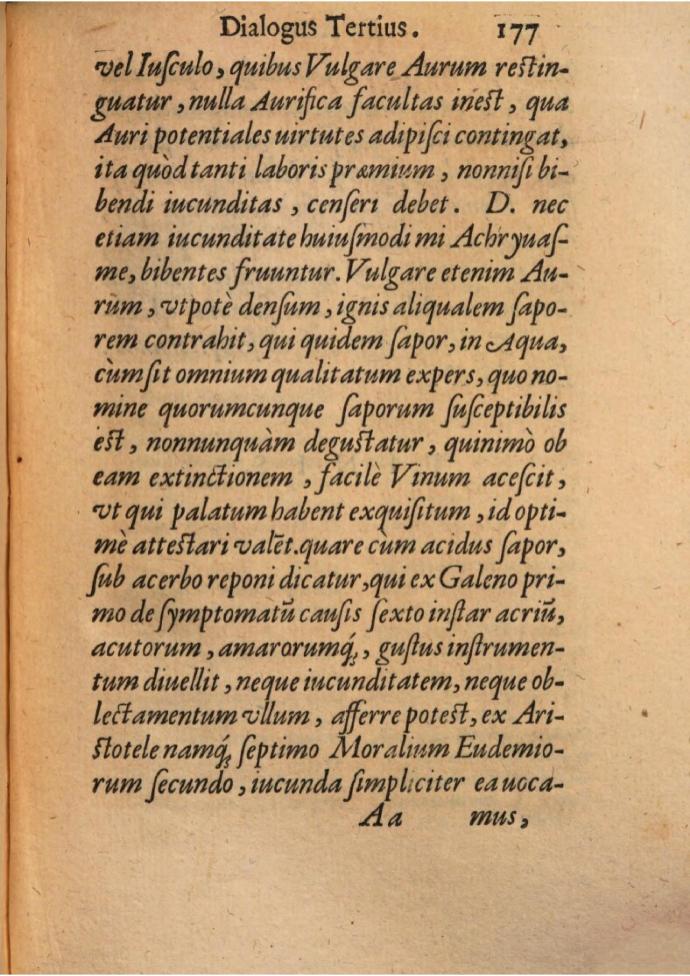 Dialogus Tertius. 177
vel Iuſculo, quibus Vulgare Aurum reſtin-
guatur, nulla Aurifica facultas ineſt, qua
Auri potentiales uirtutes adipiſci contingat,
ita quòd tanti laboris præmium, nonniſi bi-
bendi iucunditas, cenſeri debet. D. nec
etiam iucunditate huiuſmodi mi Achryuaſ-
me, bibentes fruuntur. Vulgare etenim Au-
rum, vtpotè denſum, ignis aliqualem ſapo-
rem contrahit, qui quidem ſapor, in Aqua,
cùm ſit omnium qualitatum expers, quo no-
mine quorumcunque ſaporum ſuſceptibilis
eſt, nonnunquàm deguſtatur, quinimò ob
eam extinctionem, facilè Vinum aceſcit,
vt qui palatum habent exquiſitum, id opti-
mè atteſtari valēt. quare cùm acidus ſapor,
ſub acerbo reponi dicatur, qui ex Galeno pri-
mo de ſymptomatū cauſis ſexto inſtar acriū,
acutorum, amarorumq́;, guſtus inſtrumen-
tum diuellit, neque iucunditatem, neque ob-
lectamentum vllum, afferre poteſt, ex Ari-
ſtotele namq́; ſeptimo Moralium Eudemio-
rum ſecundo, iucunda ſimpliciter ea uoca-
Aa mus,